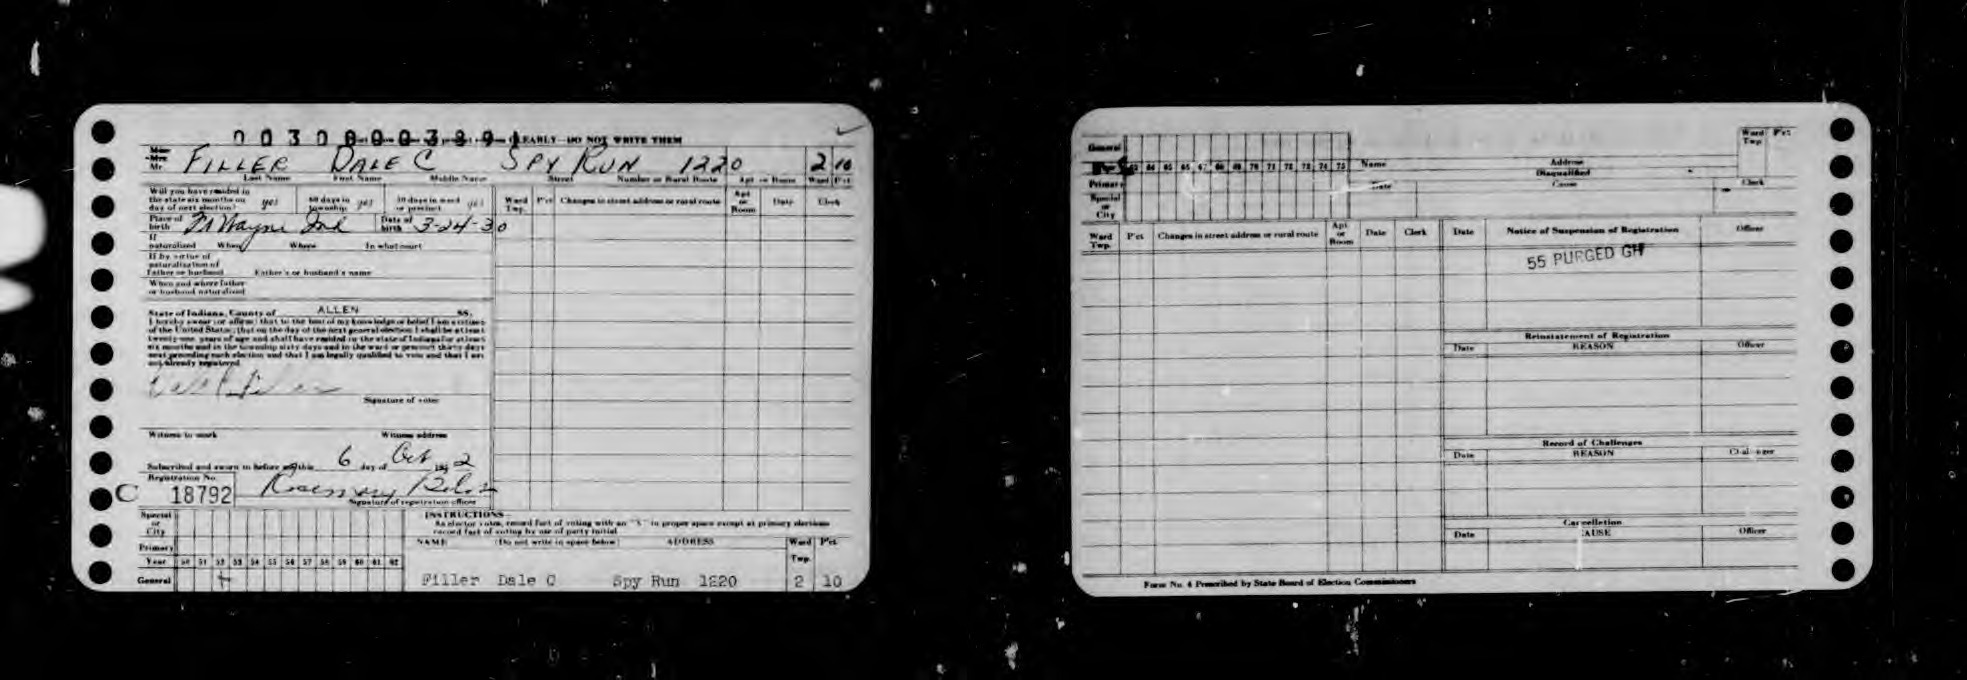 0030800389 CLEARLY—DO NOT WRITE THEM
Mr. FILLER DALE C SPY RUN 1220 2 10
Last Name First Name Middle Name Street Number or Rural Route Apt. or Room Ward Pct
Will you have resided in the state six months on day of next election? yes 60 days in township yes 30 days in ward or precinct yes
Ward Twp. Pct Changes in street address or rural route Apt. or Room Date Clerk
Place of birth Ft Wayne Ind Date of birth 3-24-30
If naturalized When Where In what court
If by virtue of naturalization of Father or husband Father's or husband's name
When and where father or husband naturalized
State of Indiana, County of ALLEN SS.
I hereby swear (or affirm) that to the best of my knowledge or belief I am a citizen
of the United States; that on the day of the next general election I shall be at least
twenty-one years of age and shall have resided in the state of Indiana for at least
six months and in the township sixty days and in the ward or precinct thirty days
next preceding such election and that I am legally qualified to vote and that I am
not already registered
Signature of voter
Witness to mark Witness address
Subscribed and sworn to before me this 6 day of Oct 1952
Registration No.
C 18792 Rosemary
Signature of registration officer
Special or City
Primary
Year 50 51 52 53 54 55 56 57 58 59 60 61 62
General
INSTRUCTIONS—
As elector votes, record fact of voting with an "X" in proper space except at primary elections
record fact of voting by use of party initial
NAME (Do not write in space below) ADDRESS Ward Twp. Pct.
Filler Dale C Spy Run 1220 2 10
General
63 64 65 66 67 68 69 70 71 72 73 74 75
Primary
Special or City
Name Address Ward Twp. Pct.
Disqualified
Date Cause Clerk
Ward Twp. Pct Changes in street address or rural route Apt. or Room Date Clerk
Date Notice of Suspension of Registration Officer
55 PURGED GH
Reinstatement of Registration
Date REASON Officer
Record of Challenges
Date REASON Challenger
Cancelletion
Date CAUSE Officer
Form No. 4 Prescribed by State Board of Election Commissioners